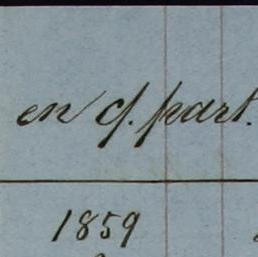 en cf. part.
1859